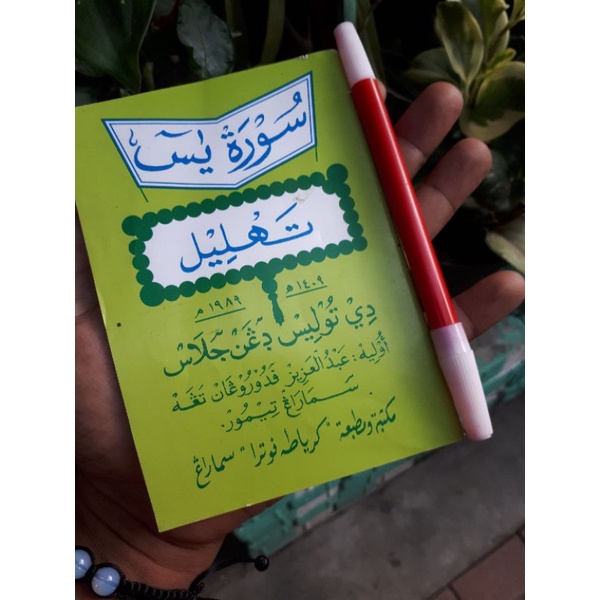 سُوْرَة يٰسٓ
تَهْلِيْل
١٤٠٩ هـ
١٩٨٩ م
دِيْ تُوْلِيْس دڠَنْ جَلَاسْ
أُوْلِيه: عَبْدُ الْعَزِيْز ڤدُوْرُوْڠَان تڠَه
سَمَارَاڠ تِيْمُوْر.
مكتبة ومطبعة "كرياطه فوترا" سماراڠ